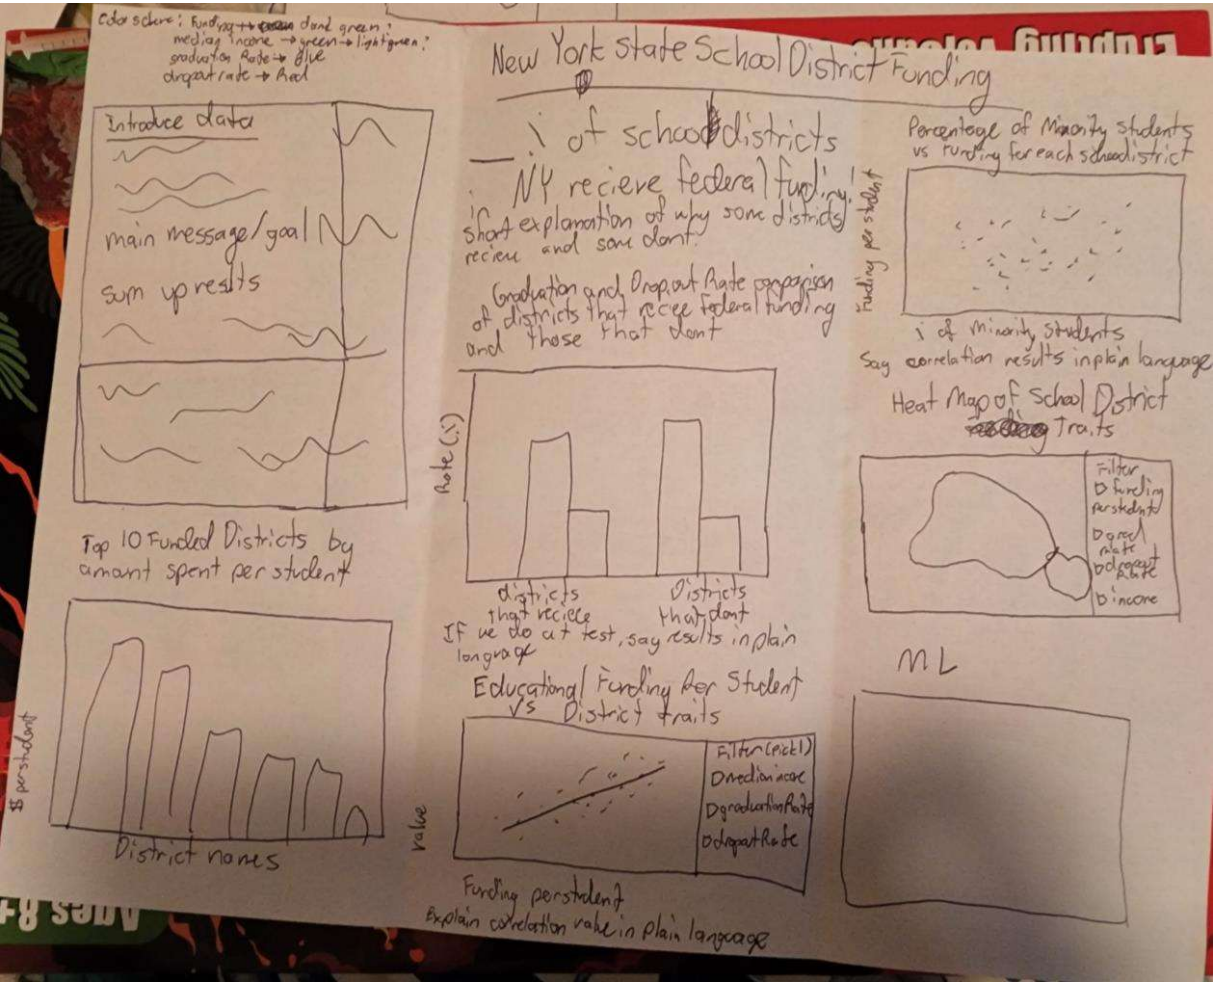 Color scheme: Funding → dark green?
median income → green → light green?
graduation Rate → Blue
dropout rate → Red
New York State School District Funding
Introduce data
main message/goal
sum up results
Top 10 Funded Districts by
amount spent per student
$ per student
District names
__ % of school districts
NY recieve federal funding!
short explanation of why some districts
recieve and some dont.
Graduation and Dropout Rate comparison
of districts that recieve Federal funding
and those that dont
Rate (%)
districts
that recieve
Districts
that dont
If we do a t test, say results in plain
language
Educational Funding Per Student
vs District traits
value
Filter (pick 1)
median income
graduation Rate
dropout Rate
Funding per student
Explain correlation value in plain language
Percentage of Minority Students
vs Funding for each school district
Funding per student
% of Minority students
Say correlation results in plain language
Heat Map of School District
Traits
Filter
funding
per student
grad
rate
dropout
Rate
income
ML
Erupting Volcano
Ages 8+